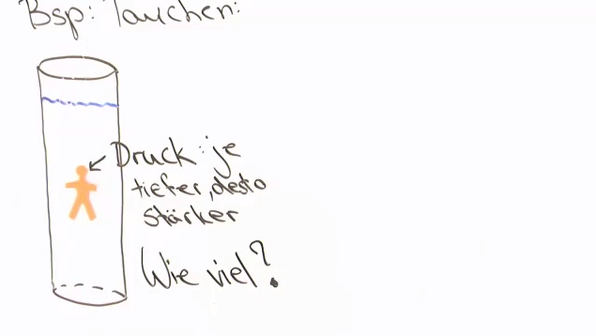 Bsp: Tauchen:
Druck: je
tiefer, desto
stärker
Wie viel?